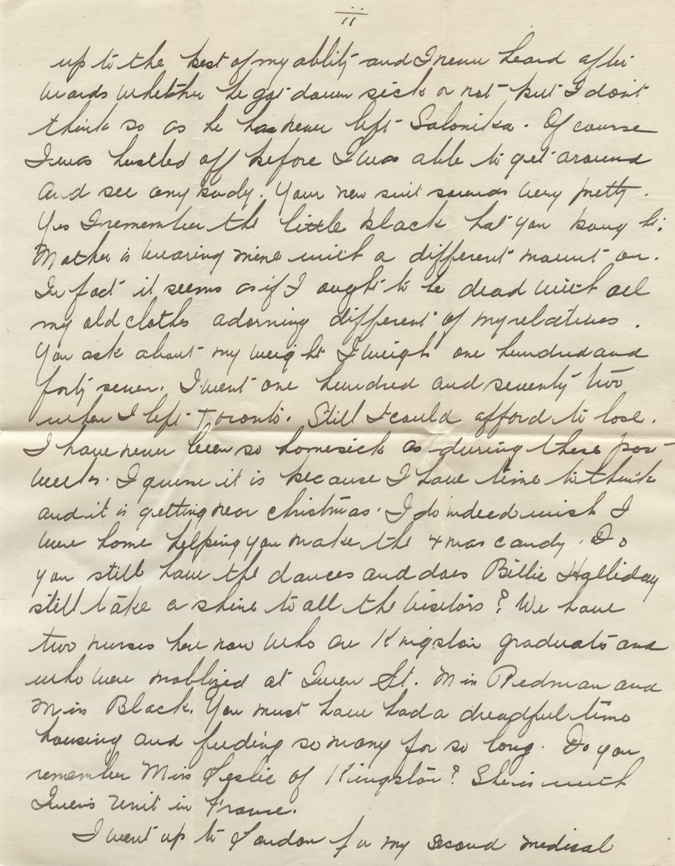 ii
up to the best of my ability and I never heard after
wards whether he got down sick or not but I don't
think so as he has never left Salonika. Of course
I was hustled off before I was able to get around
and see any body. Your new suit sounds very pretty.
Yes I remember the little black hat you bought.
Mother is wearing mine with a different mount on.
In fact it seems as if I ought to be dead with all
my old clothes adorning different of my relatives.
You ask about my weight I weigh one hundred and
forty seven. I went one hundred and seventy two
when I left Toronto. Still I could afford to lose.
I have never been so homesick as during these past
weeks. I guess it is because I have time to think
and it is getting near Christmas. I do indeed wish I
were home helping you make the Xmas candy. Do
you still have the dances and does Billie Halliday
still take a shine to all the visitors? We have
two nurses here now who are Kingston graduates and
who were moblized at Queen St. Miss Redman and
Miss Black. You must have had a dreadful time
housing and feeding so many for so long. Do you
remember Miss Leslie of Kingston? She is with
Queens Unit in France.
I went up to London for my second medical